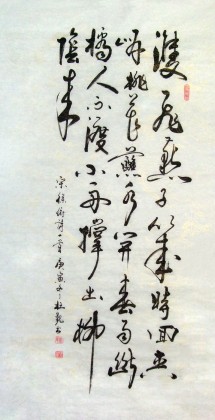 雙飛燕子幾時回夾
岸桃花蘸水開春雨斷
橋人不渡小舟撐出柳
陰來
宋徐俯詩一首庚寅